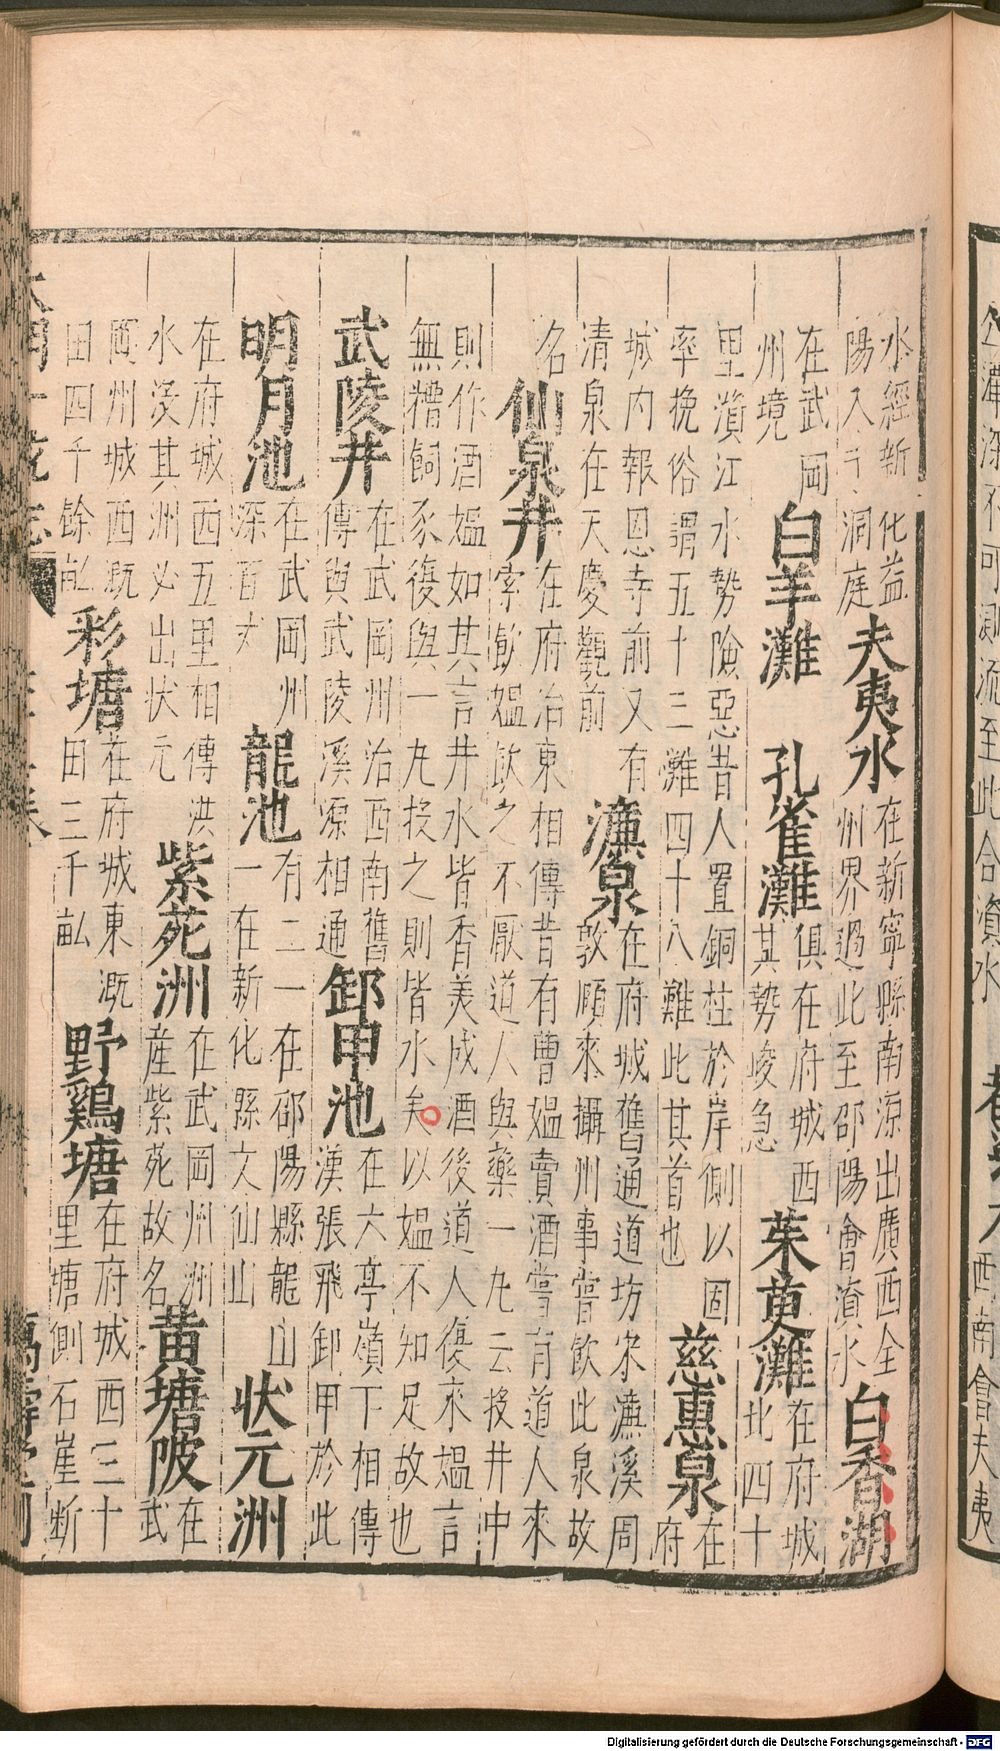 水經新化益
陽入于洞庭
夫夷水
在新寧縣南源出廣西全
州界過此至邵陽會濱水
白香湖
在武岡
州境
白羊灘
孔雀灘
俱在府城西
其勢峻急
茱萸灘
在府城
北四十
里濱江水勢險惡昔人置銅柱於岸側以固
率挽俗謂五十三灘四十八難此其首也
慈惠泉
在
府
城內報恩寺前又有
清泉在天慶觀前
濂泉
在府城舊通道坊宋濂溪周
敦頤來攝州事嘗飲此泉故
名
仙泉井
在府治東相傳昔有曹媼賣酒嘗有道人來
索飲媼飲之不厭道人與藥一丸云投井中
則作酒媼如其言井水皆香美成酒後道人復來媼言
無糟飼豕復與一丸投之則皆水矣以媼不知足故也
武陵井
在武岡州治西南舊
傳與武陵溪源相通
卸甲池
在六亭嶺下相傳
漢張飛卸甲於此
明月池
在武岡州
深百丈
龍池
有二一在邵陽縣龍山
一在新化縣文仙山
狀元洲
在府城西五里相傳洪
水沒其洲必出狀元
紫菀洲
在武岡州洲
產紫菀故名
黃塘陂
在
武
岡州城西溉
田四千餘畝
彩塘
在府城東溉
田三千畝
野鷄塘
在府城西三十
里塘側石崖斷
大明一統志
萬壽堂刊
Digitalisierung gefördert durch die Deutsche Forschungsgemeinschaft - DFG